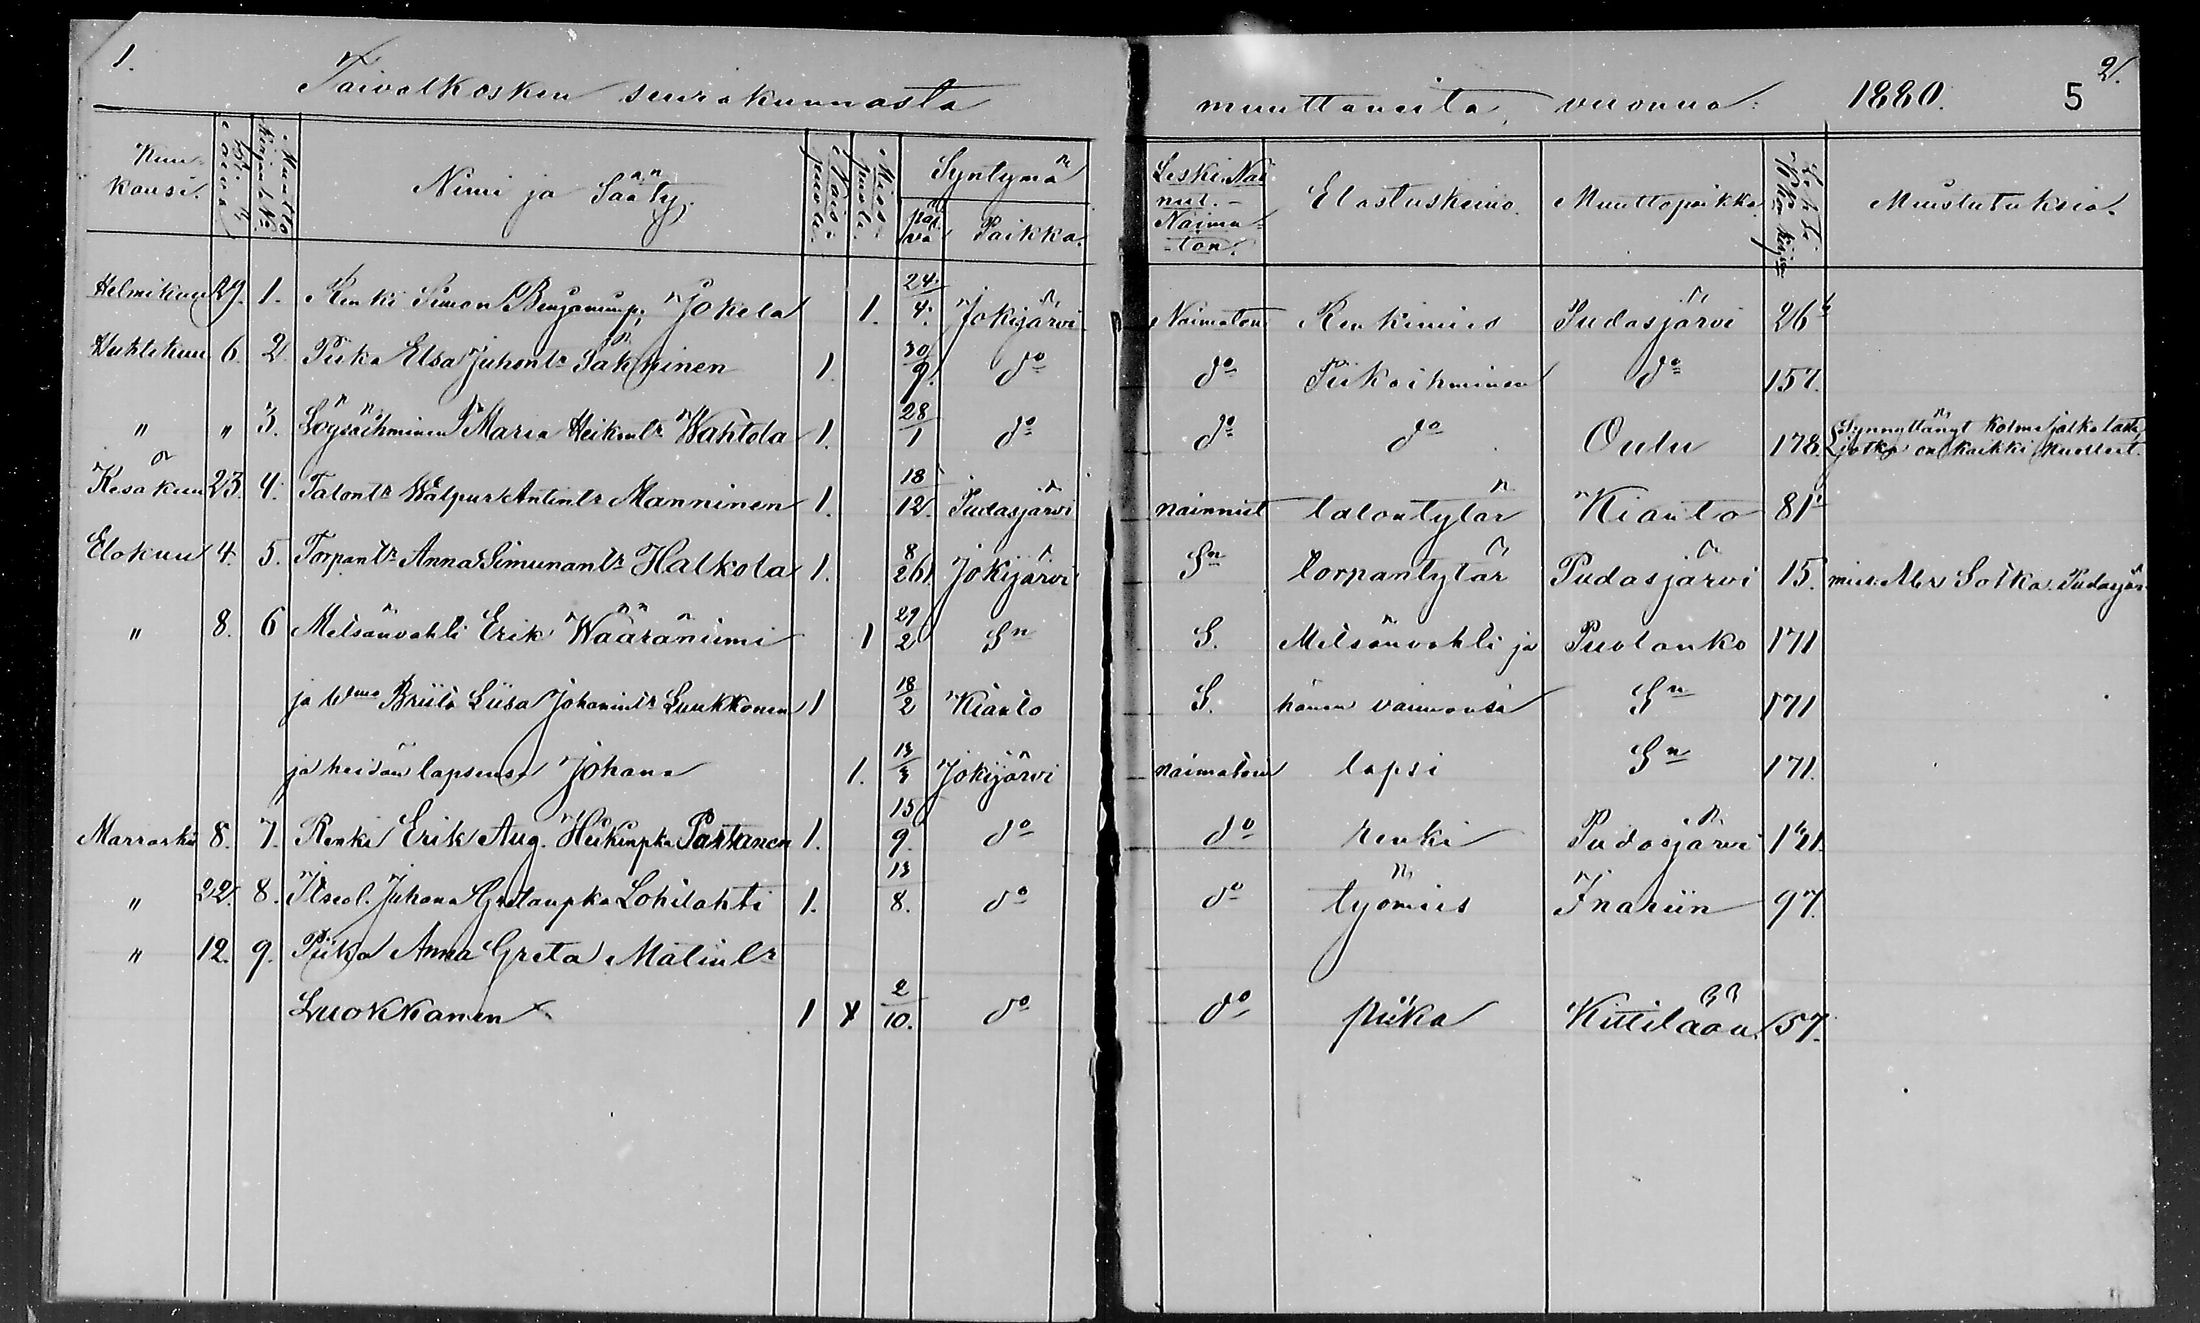 1.
Taivalkosken seurakunnasta muuttaneita, vuonna: 1880. 5 2.
Kuu-kausi. Muutto Kirjan No Nimi ja Sääty. Nais-puoli. Mies-puoli. Syntymä päivä Paikka. Leski. Nainut.- Naima-ton. Elatuskeino. Muuttopaikka Muistutuksia.
Helmikuu 29. 1. Renki Simon Benjaminp. Jokela 1. 24/4. Jokijärvi Naimaton Renkimies Pudasjärvi 26
Huhtikuu 6. 2 Piika Elsa Juhontr Säkkinen 1. 30/9. do do Piikaihminen do 157.
" " 3. Löysäihminen Maria Heikintr Wahtola 1. 28/1 do do do Oulu 178. Synnyttänyt kolme lasta jotka on kaikki kuolleet.
Kesäkuu 23. 4. Talontr Walpur Antintr Manninen 1. 18/12. Pudasjärvi nainnut talontytär Kianto 81
Elokuu 4. 5. Torpantr Anna Simunantr Halkola 1. 8/261 Jokijärvi Sn torpantytär Pudasjärvi 15. mies Abr Sotka Pudasjär
" 8. 6 Metsänvahti Erik Wääräniemi 1 29/2 Sn S. Metsänvahti ja Puolanko 171
ja Wmo Briita Liisa Johanintr Luukkonen 1 18/2 Kianto S. hänen vaimonsa Sn 171
ja heidän lapsensa Johana 1. 13/3 Jokijärvi naimatoin lapsi Sn 171.
Marrasku 8. 7. Renki Erik Aug. Heikinpka Partanen 1. 15/9. do do renki Pudasjärvi 121.
" 22. 8. Itseol. Juhana Lohilahti 1. 13/8. do do työmies Inariin 97.
" 12. 9. Piika Anna Greta Matintr
Luokkanen 1 2/10. do do piika Kittilään 57.